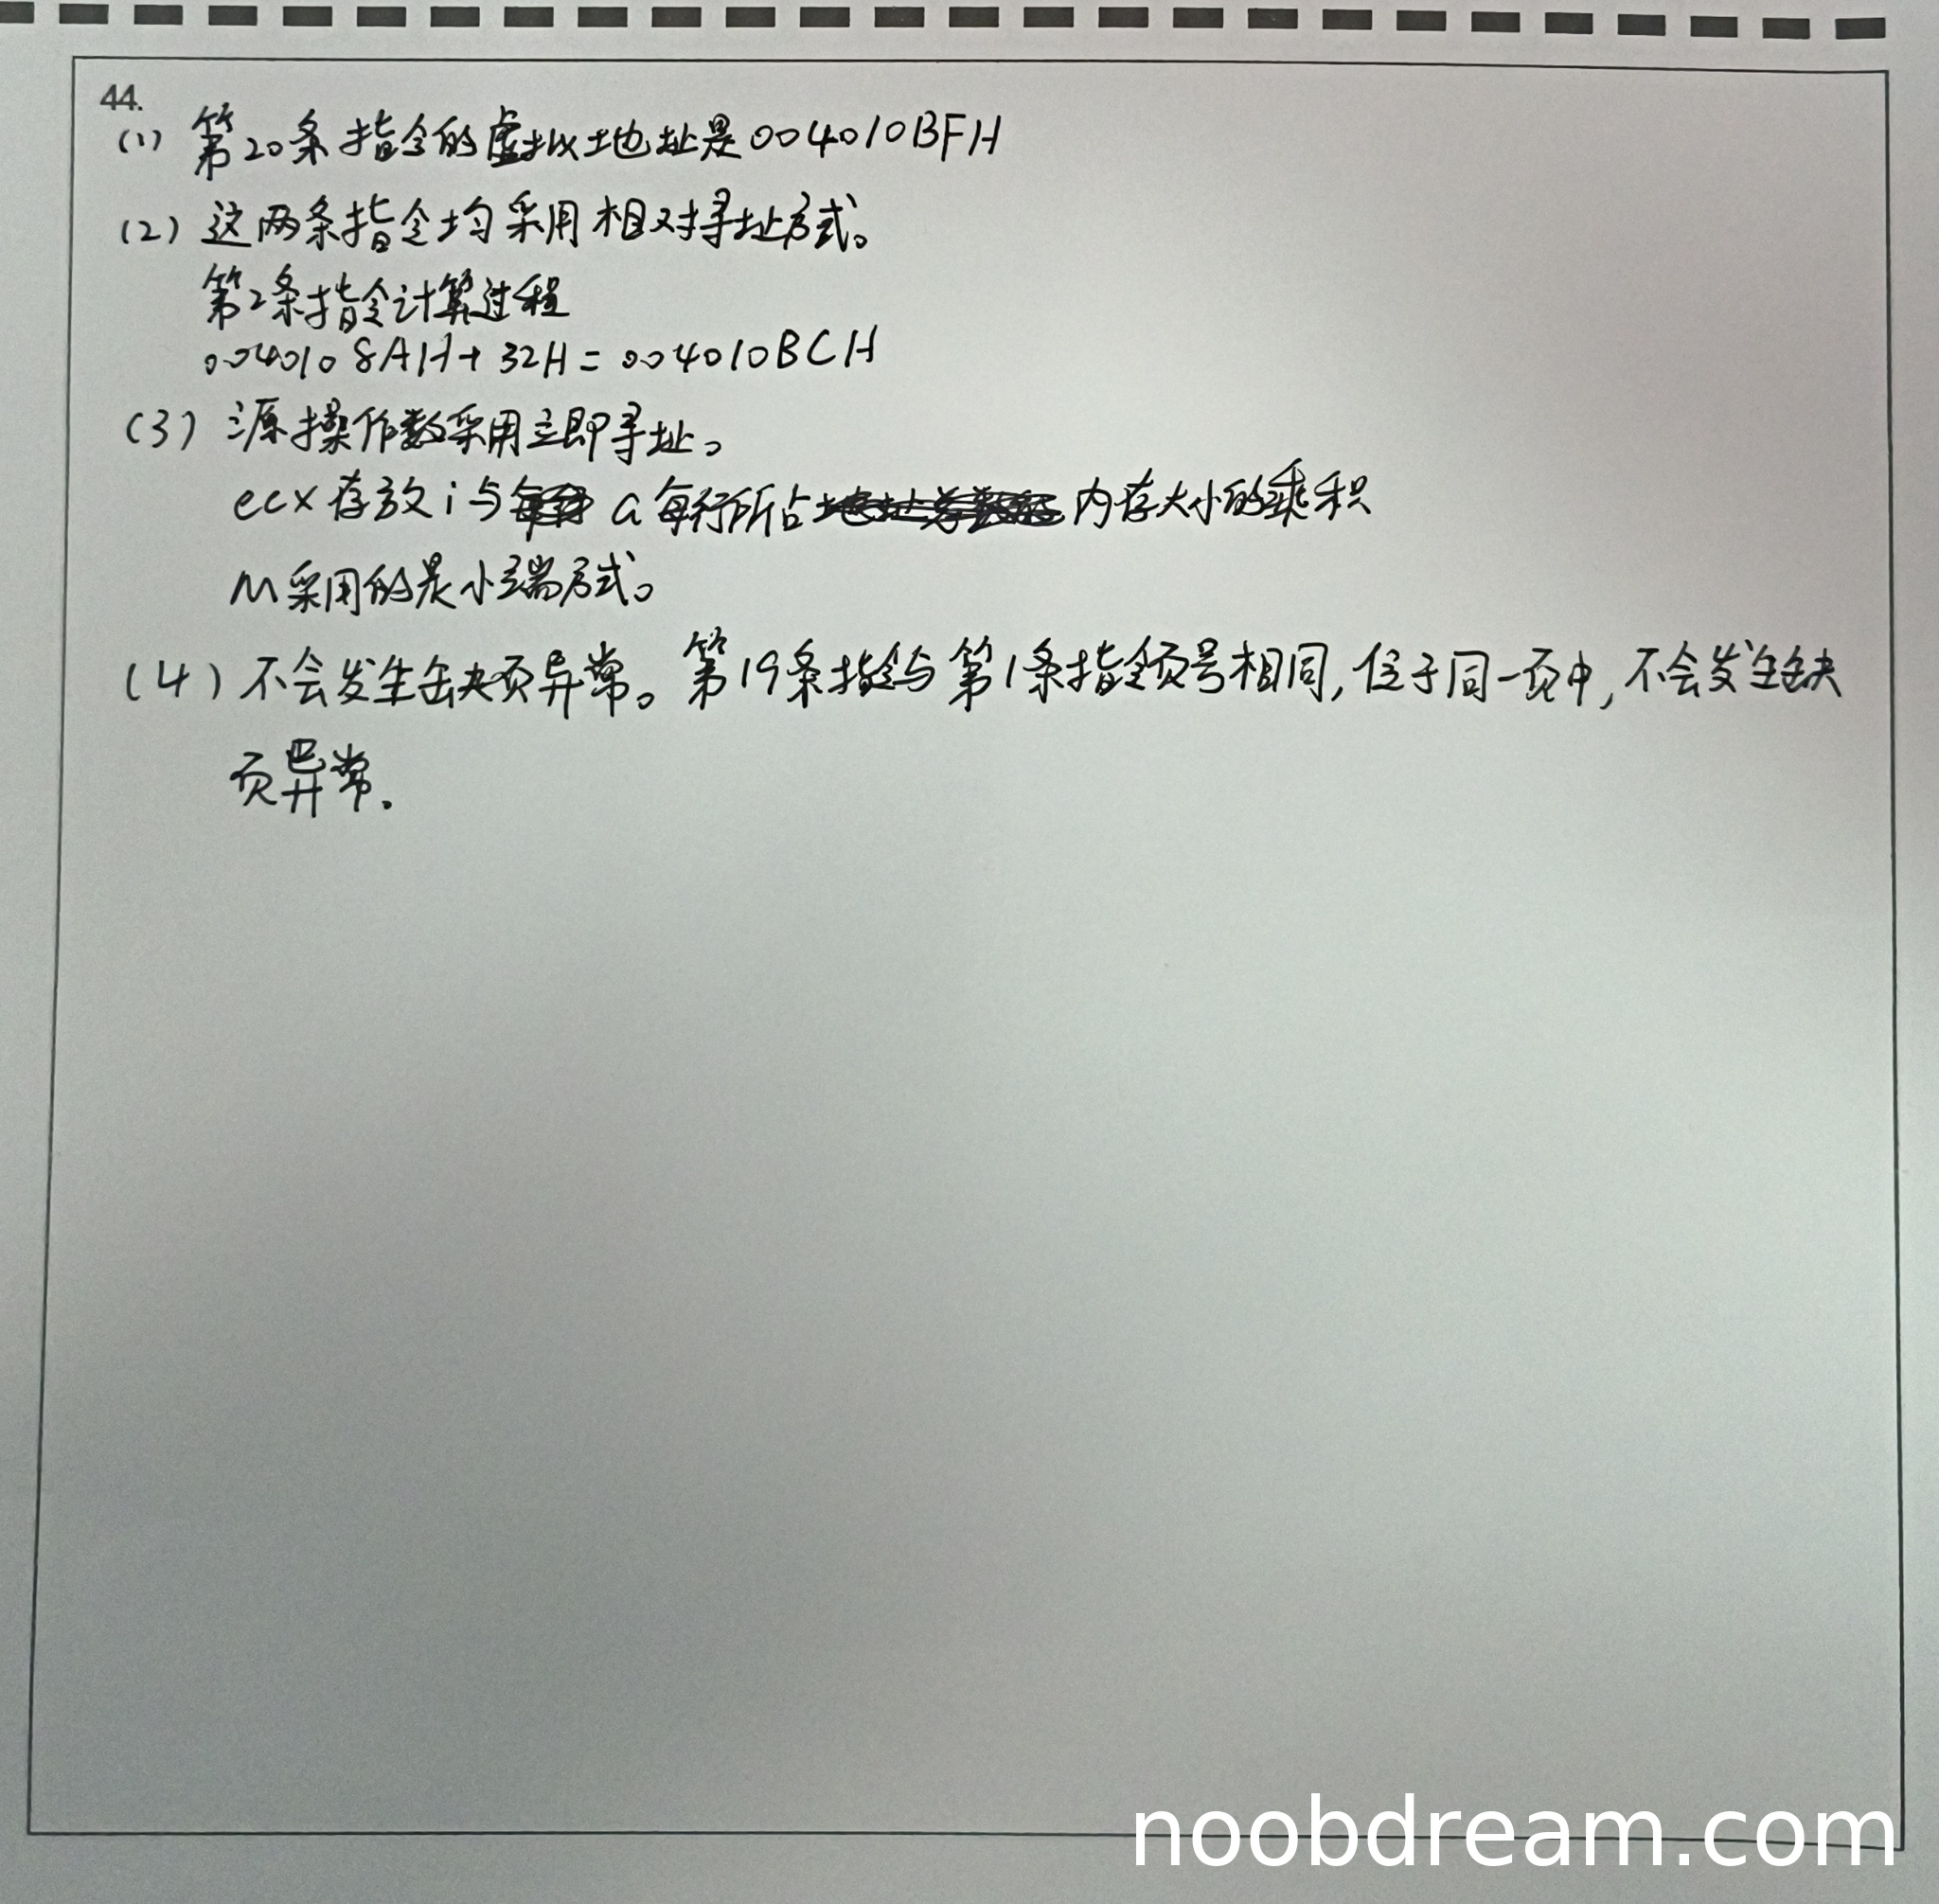 44.
(1) 第20条指令的虚拟地址是004010BFH
(2) 这两条指令均采用相对寻址方式。
第2条指令计算过程
0040108AH+32H=004010BCH
(3) 源操作数采用立即寻址。
ecx存放i与a每行所占内存大小的乘积
M采用的是小端方式。
(4) 不会发生缺页异常。第19条指令与第1条指令页号相同,位于同一页中,不会发生缺
页异常.
noobdream.com